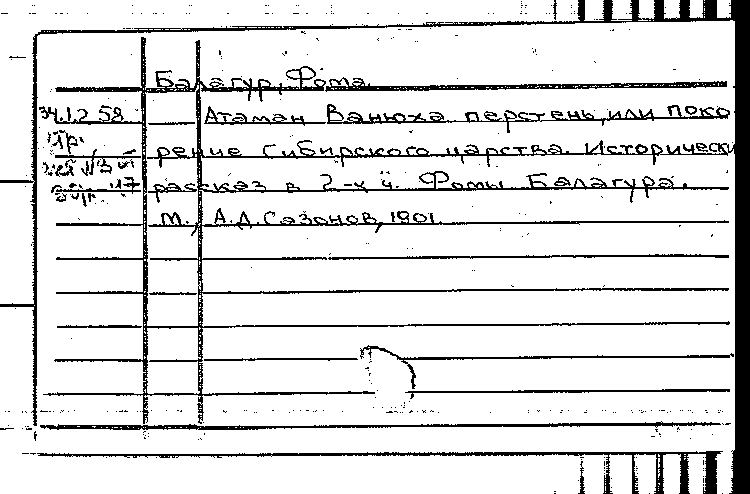 Балагур, Фома.
34.1.2.58 Атаман Ванюха перстень, или поко-
рение Сибирского царства. Исторически
рассказ в 2-х ч. Фомы Балагура.
М., А.Д. Сазонов, 1901.